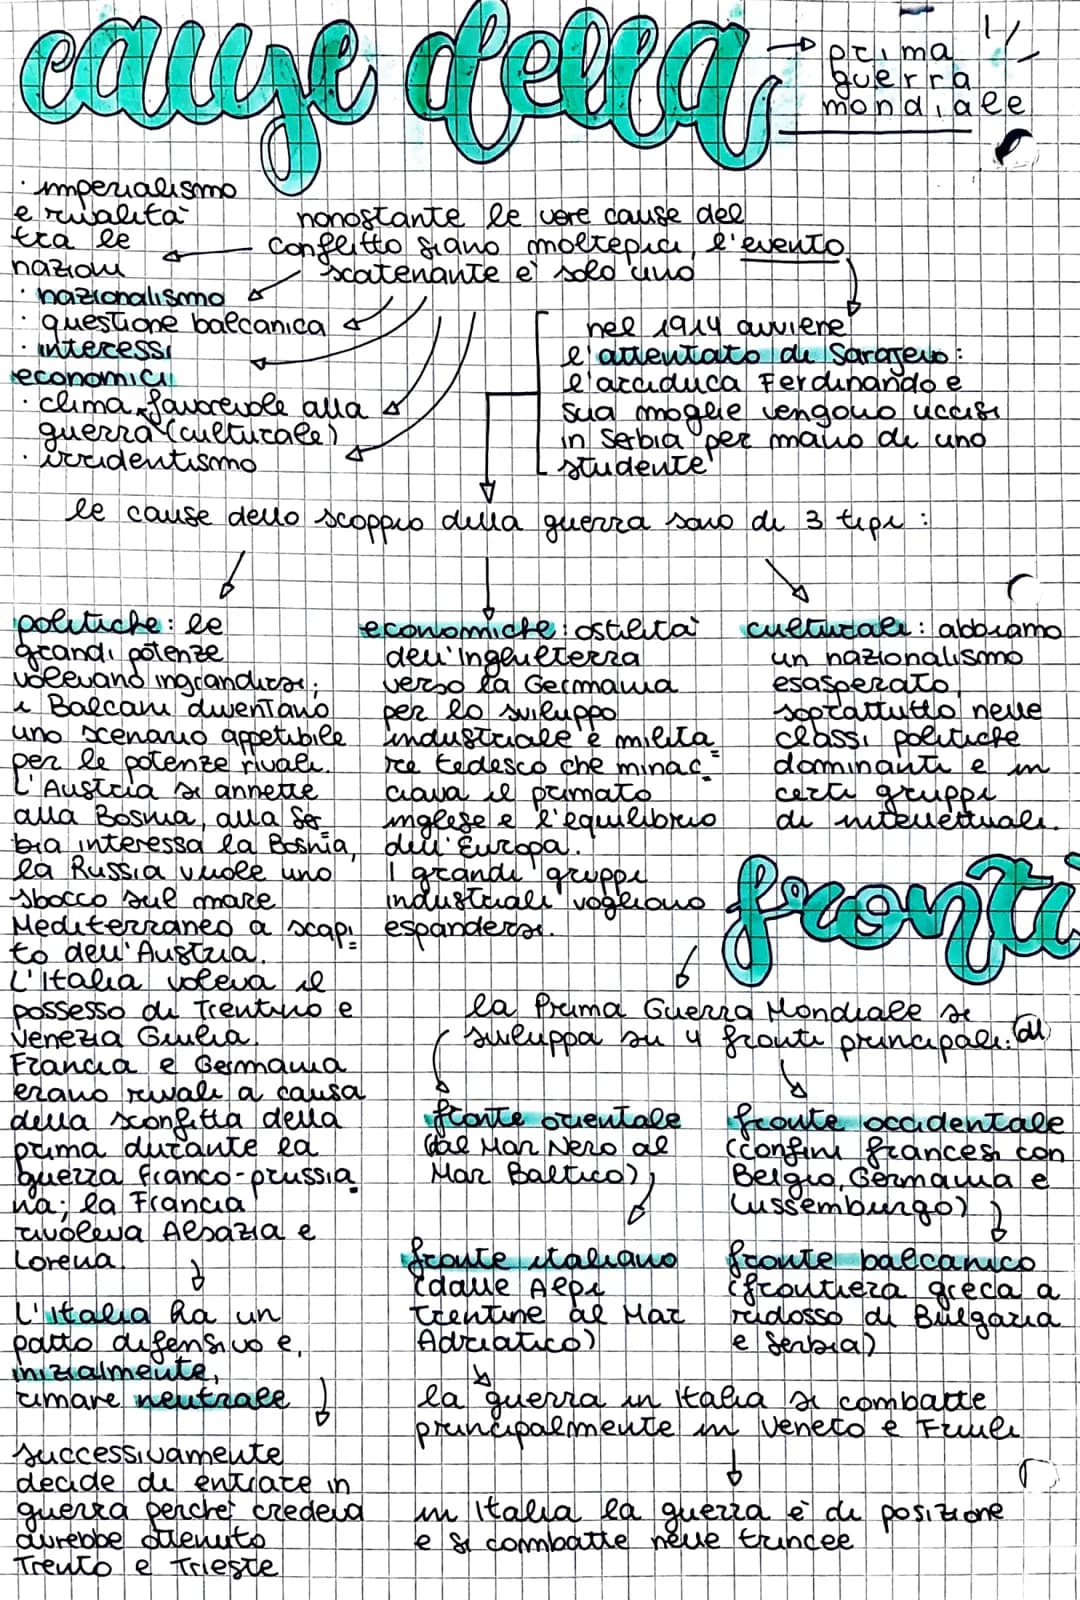 cause della
prima
guerra
mondiale
· imperialismo
e rivalità
tra le
nazioni
· nazionalismo
· questione balcanica
· interessi
economici
· clima favorevole alla
guerra (culturale)
· irridentismo
nonostante le vere cause del
conflitto siano molteplici, l'evento
scatenante è solo uno
nel 1914 avviene
l'attentato di Sarajevo:
l'arciduca Ferdinando e
sua moglie vengono uccisi
in Serbia per mano di uno
studente
le cause dello scoppio della guerra sono di 3 tipi:
politiche: le
grandi potenze
volevano ingrandirsi;
i Balcani diventano
uno scenario appetibile
per le potenze rivali.
L'Austria si annette
alla Bosnia, alla Ser
bia interessa la Bosnia,
la Russia vuole uno
sbocco sul mare
Mediterraneo a scapi
to dell'Austria.
L'Italia voleva il
possesso di Trentino e
Venezia Giulia.
Francia e Germania
erano rivali a causa
della sconfitta della
prima durante la
guerra franco-prussia
na; la Francia
rivoleva Alsazia e
Lorena.
L'Italia ha un
patto difensivo e,
inizialmente,
rimare neutrale
successivamente
decide di entrare in
guerra perché credeva
avrebbe ottenuto
Trento e Trieste
economiche: ostilità
dell'Inghilterra
verso la Germania
per lo sviluppo
industriale e milita
re tedesco che minac
ciava il primato
inglese e l'equilibrio
dell'Europa.
I grandi gruppi
industriali vogliono
espandersi.
culturali: abbiamo
un nazionalismo
esasperato,
soprattutto nelle
classi politiche
dominanti e in
certi gruppi
di intellettuali.
fronti
la Prima Guerra Mondiale si
sviluppa su 4 fronti principali:
fronte orientale
(dal Mar Nero al
Mar Baltico)
fronte occidentale
(confini francesi con
Belgio, Germania e
Lussemburgo)
fronte italiano
(dalle Alpi
trentine al Mar
Adriatico)
fronte balcanico
(frontiera greca a
ridosso di Bulgaria
e Serbia)
la guerra in Italia si combatte
principalmente in Veneto e Friuli
in Italia la guerra è di posizione
e si combatte nelle trincee